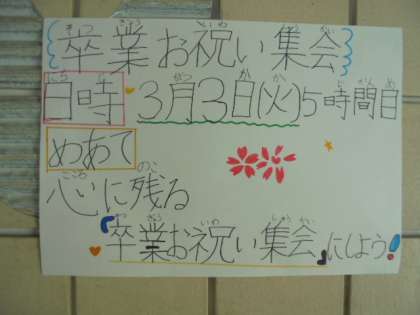 卒業お祝い集会
日時 3月3日(火)5時間目
めあて
心に残る
『卒業お祝い集会』にしよう!